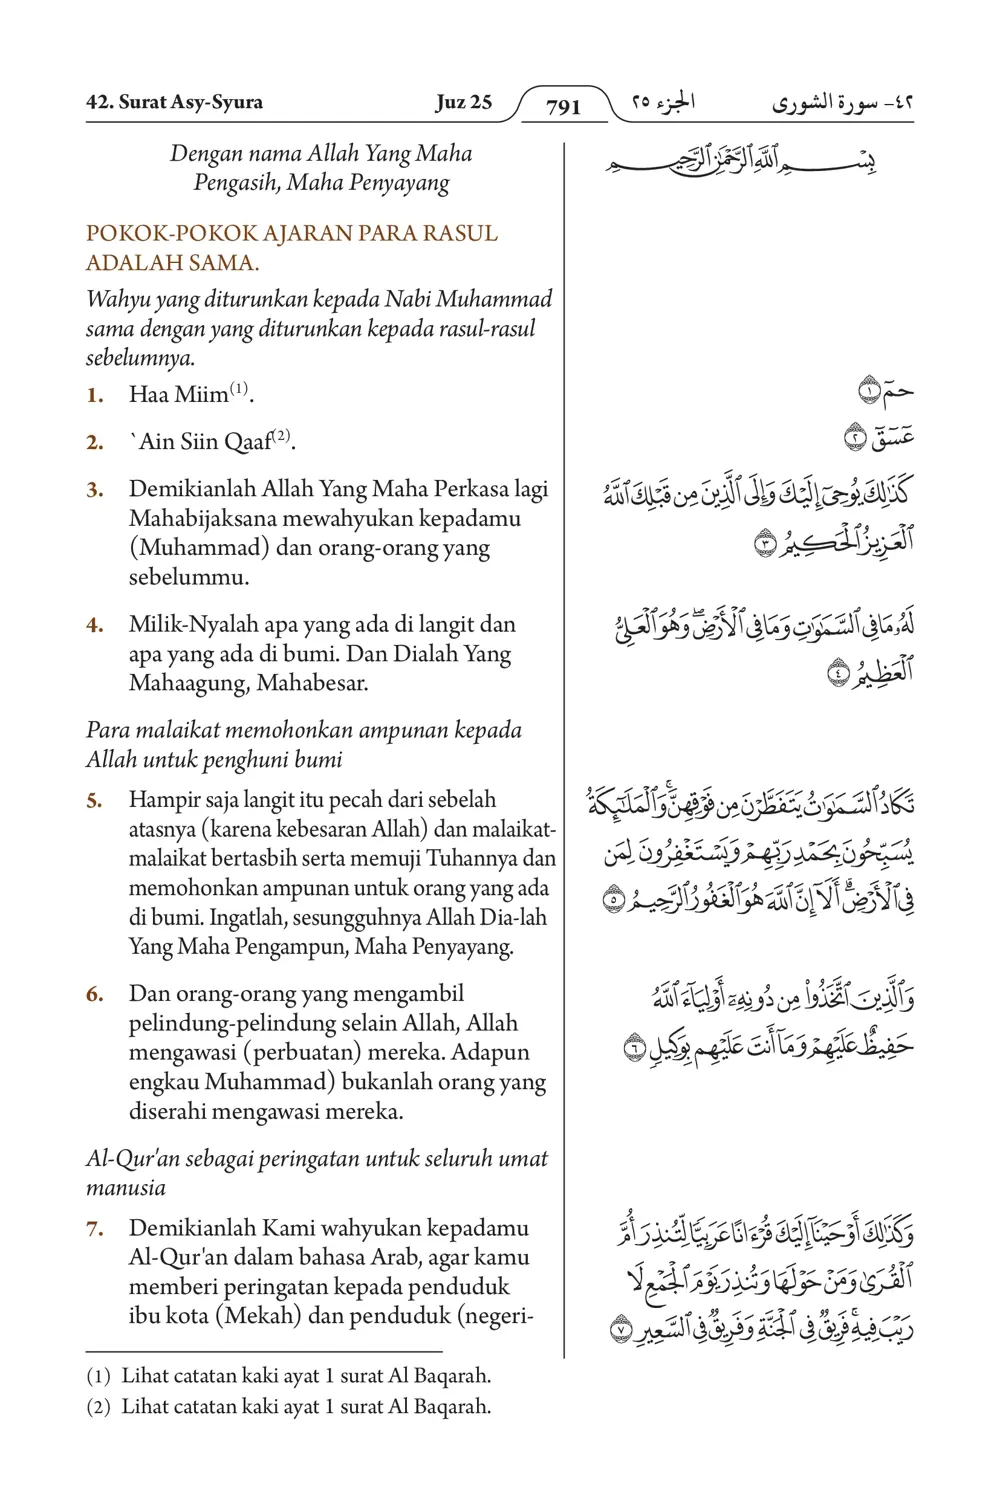 42. Surat Asy-Syura
Juz 25
791
الجزء ٢٥
٤٢- سورة الشورى
Dengan nama Allah Yang Maha
Pengasih, Maha Penyayang
بِسْمِ ٱللَّهِ ٱلرَّحْمَٰنِ ٱلرَّحِيمِ
POKOK-POKOK AJARAN PARA RASUL
ADALAH SAMA.
Wahyu yang diturunkan kepada Nabi Muhammad
sama dengan yang diturunkan kepada rasul-rasul
sebelumnya.
1. Haa Miim(1).
حمٓ ١
2. `Ain Siin Qaaf(2).
عٓسٓقٓ ٢
3. Demikianlah Allah Yang Maha Perkasa lagi
Mahabijaksana mewahyukan kepadamu
(Muhammad) dan orang-orang yang
sebelummu.
كَذَٰلِكَ يُوحِىٓ إِلَيْكَ وَإِلَى ٱلَّذِينَ مِن قَبْلِكَ ٱللَّهُ
ٱلْعَزِيزُ ٱلْحَكِيمُ ٣
4. Milik-Nyalah apa yang ada di langit dan
apa yang ada di bumi. Dan Dialah Yang
Mahaagung, Mahabesar.
لَهُۥ مَا فِى ٱلسَّمَٰوَٰتِ وَمَا فِى ٱلْأَرْضِ ۖ وَهُوَ ٱلْعَلِىُّ
ٱلْعَظِيمُ ٤
Para malaikat memohonkan ampunan kepada
Allah untuk penghuni bumi
5. Hampir saja langit itu pecah dari sebelah
atasnya (karena kebesaran Allah) dan malaikat-
malaikat bertasbih serta memuji Tuhannya dan
memohonkan ampunan untuk orang yang ada
di bumi. Ingatlah, sesungguhnya Allah Dia-lah
Yang Maha Pengampun, Maha Penyayang.
تَكَادُ ٱلسَّمَٰوَٰتُ يَتَفَطَّرْنَ مِن فَوْقِهِنَّ ۚ وَٱلْمَلَٰٓئِكَةُ
يُسَبِّحُونَ بِحَمْدِ رَبِّهِمْ وَيَسْتَغْفِرُونَ لِمَن
فِى ٱلْأَرْضِ ۗ أَلَآ إِنَّ ٱللَّهَ هُوَ ٱلْغَفُورُ ٱلرَّحِيمُ ٥
6. Dan orang-orang yang mengambil
pelindung-pelindung selain Allah, Allah
mengawasi (perbuatan) mereka. Adapun
engkau Muhammad) bukanlah orang yang
diserahi mengawasi mereka.
وَٱلَّذِينَ ٱتَّخَذُوا۟ مِن دُونِهِۦٓ أَوْلِيَآءَ ٱللَّهُ
حَفِيظٌ عَلَيْهِمْ وَمَآ أَنتَ عَلَيْهِم بِوَكِيلٍ ٦
Al-Qur'an sebagai peringatan untuk seluruh umat
manusia
7. Demikianlah Kami wahyukan kepadamu
Al-Qur'an dalam bahasa Arab, agar kamu
memberi peringatan kepada penduduk
ibu kota (Mekah) dan penduduk (negeri-
وَكَذَٰلِكَ أَوْحَيْنَآ إِلَيْكَ قُرْءَانًا عَرَبِيًّا لِّتُنذِرَ أُمَّ
ٱلْقُرَىٰ وَمَنْ حَوْلَهَا وَتُنذِرَ يَوْمَ ٱلْجَمْعِ لَا
رَيْبَ فِيهِ ۚ فَرِيقٌ فِى ٱلْجَنَّةِ وَفَرِيقٌ فِى ٱلسَّعِيرِ ٧
(1) Lihat catatan kaki ayat 1 surat Al Baqarah.
(2) Lihat catatan kaki ayat 1 surat Al Baqarah.